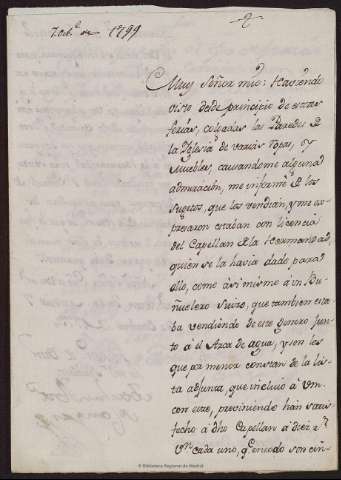 7bre de 1799
Muy Señor mio: Haviendo
visto desde principio de estas
ferias, colgadas las Paredes de
la Yglesia de varias ropas, y
Muebles, causandome alguna
admiracion, me informé de los
Sugetos, que los vendian, y me ex
presaron estaban con licencia
del Capellan de la Hermandad,
quien se la havia dado para
ello, como asi mismo á un Bu
ñuelero Suizo, que tambien esta
ba vendiendo de este genero jun
to á el Arca de agua, y son los
que por menor constan de la lis
ta adjunta, que incluio á Vm.
con este, previniendo han satis
fecho á dho Capellan á diez rs.
Vn. cada uno, qe. en todo son cin
© Biblioteca Regional de Madrid